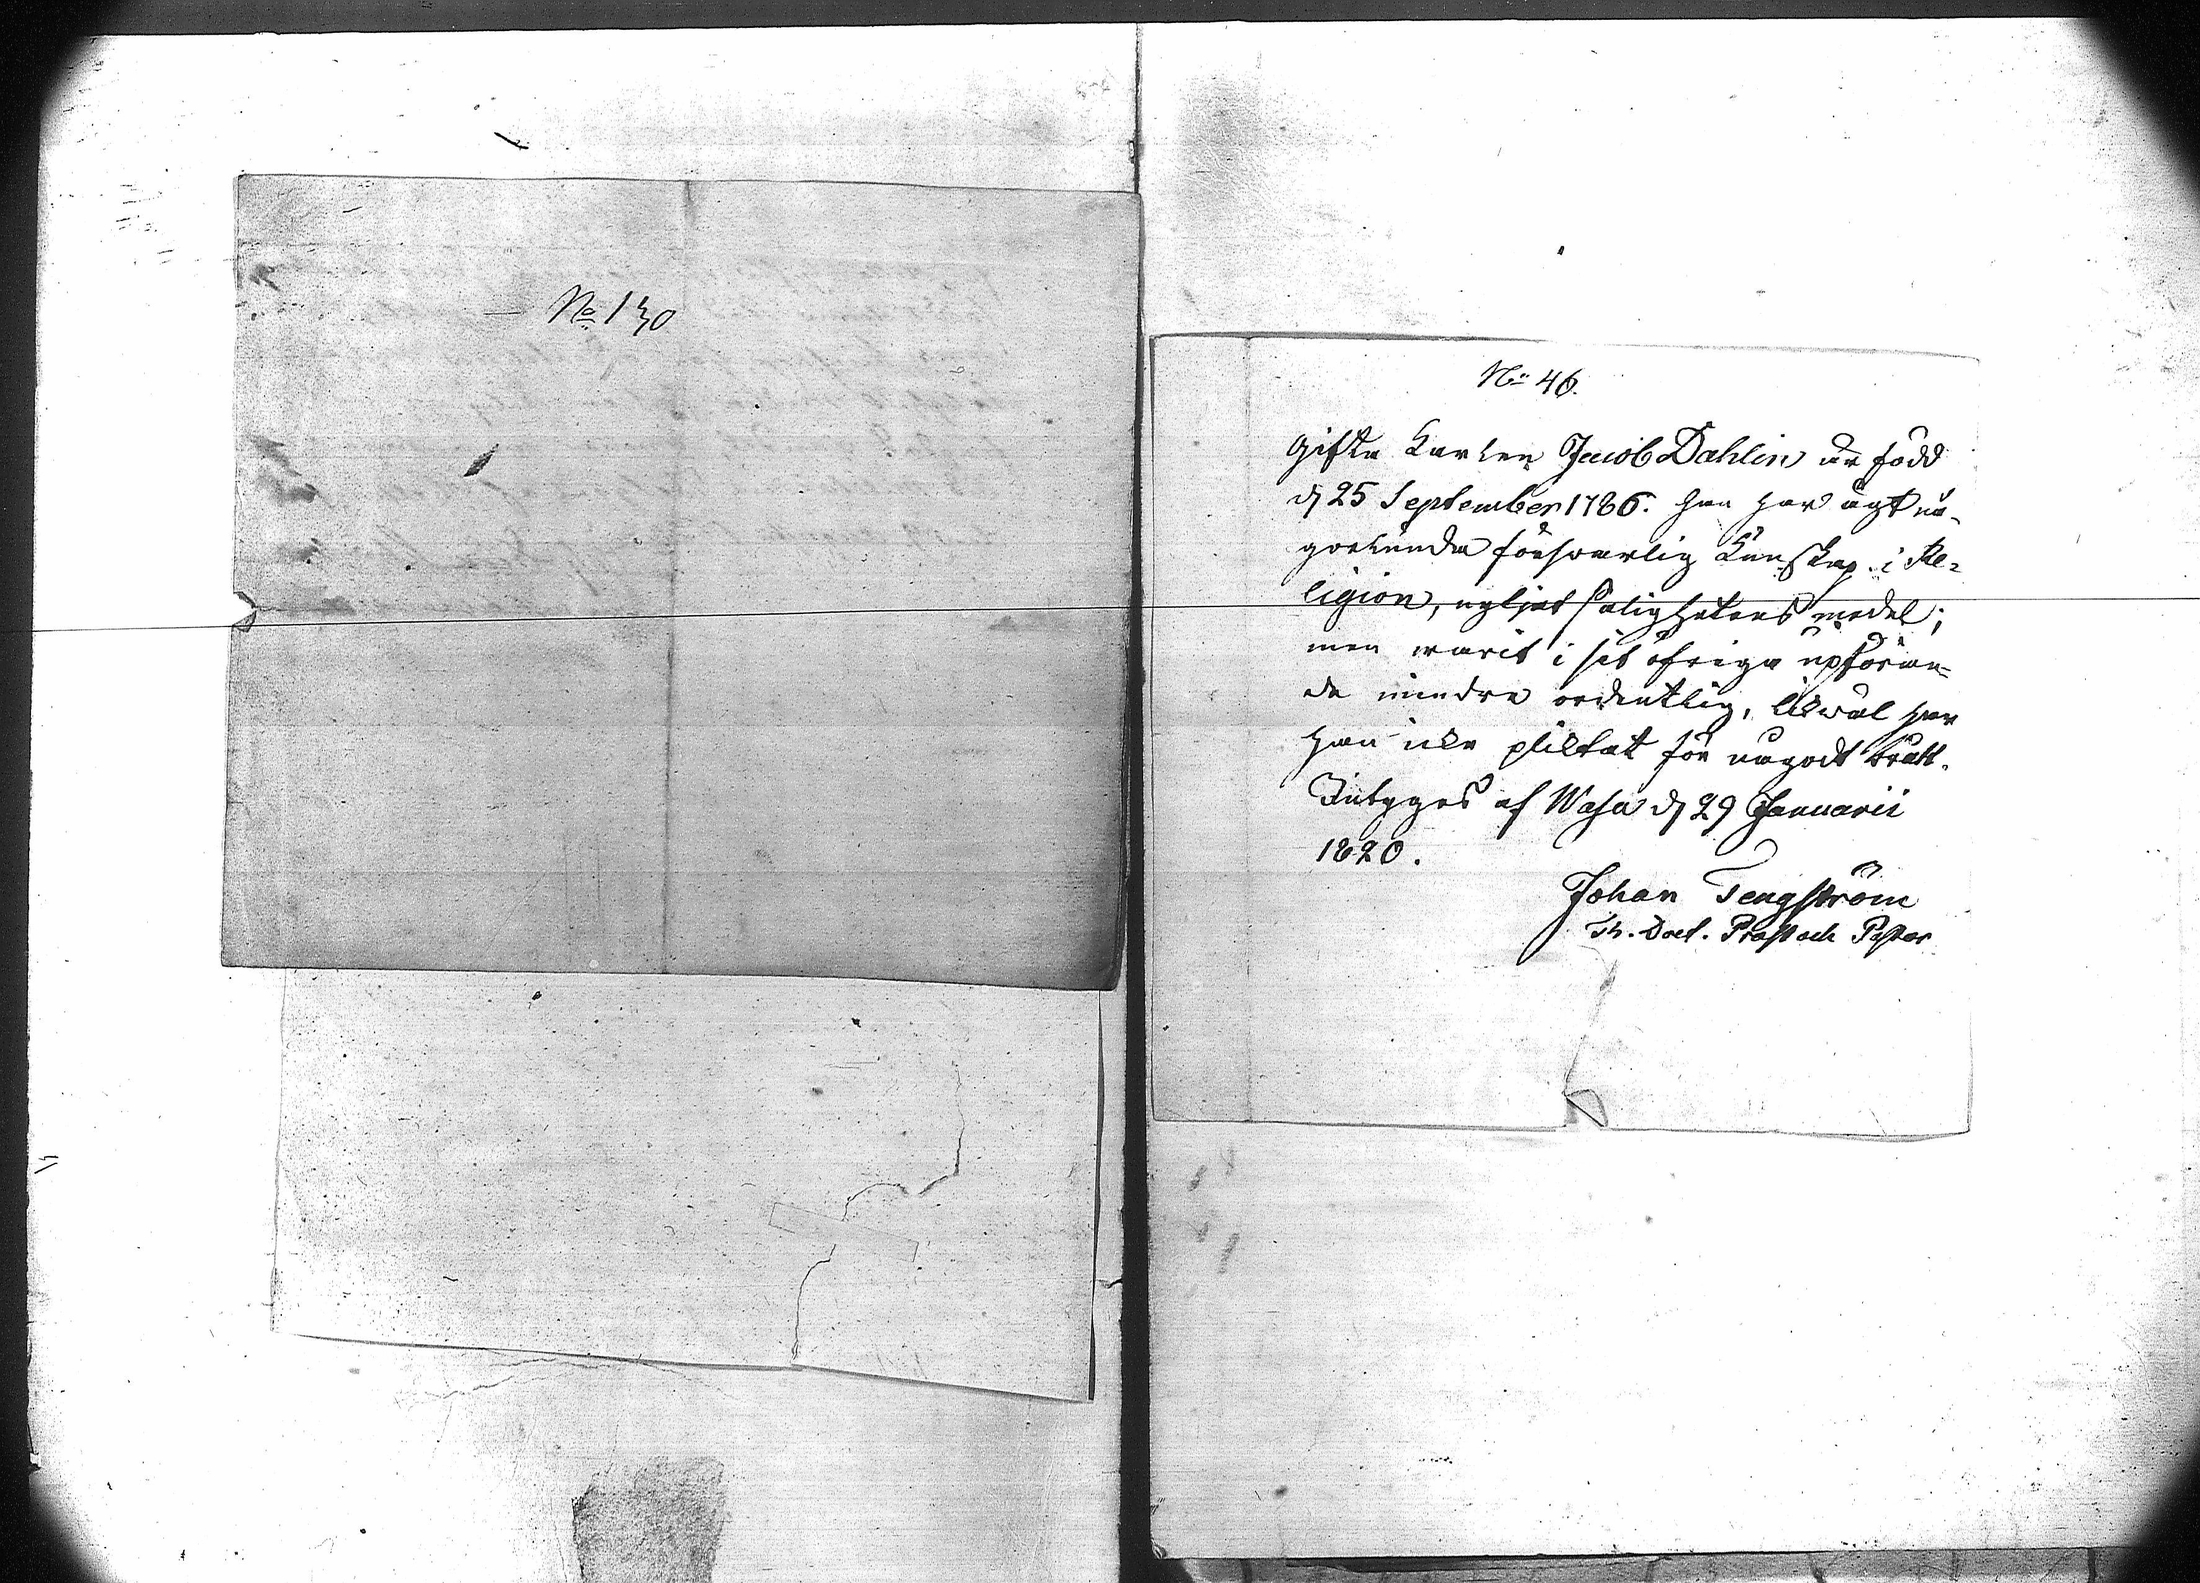 No 130
No 46.
Gifta Karlen Jacob Dahlin är född
d 25 September 1786. han har ägt nå-
gorlunda försvarlig Kunskap i Re-
ligion, nyttjat salighetens medel;
men warit i sit öfriga upföran-
de mindre ordentlig, likwäl har
han icke pliktat för nagodt brått.
Intygges af Wasa d 29 Januarii
1820.
Johan Tengström
Th. Doct. Prost och Pastor